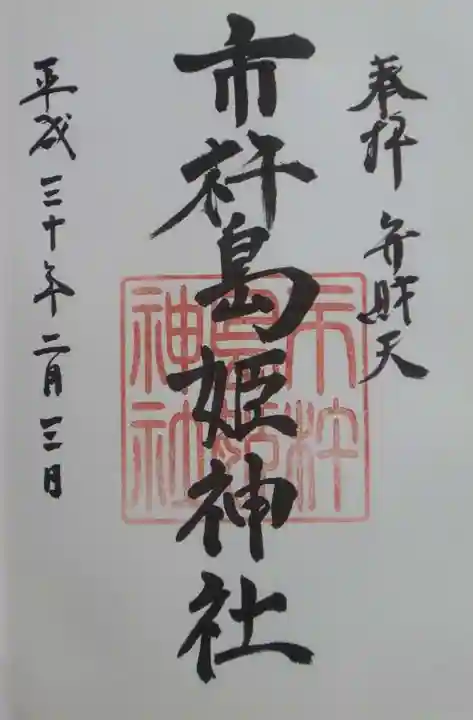 奉拝 弁財天
市杵島姫神社
平成三十年二月三日
市杵
島姫
神社